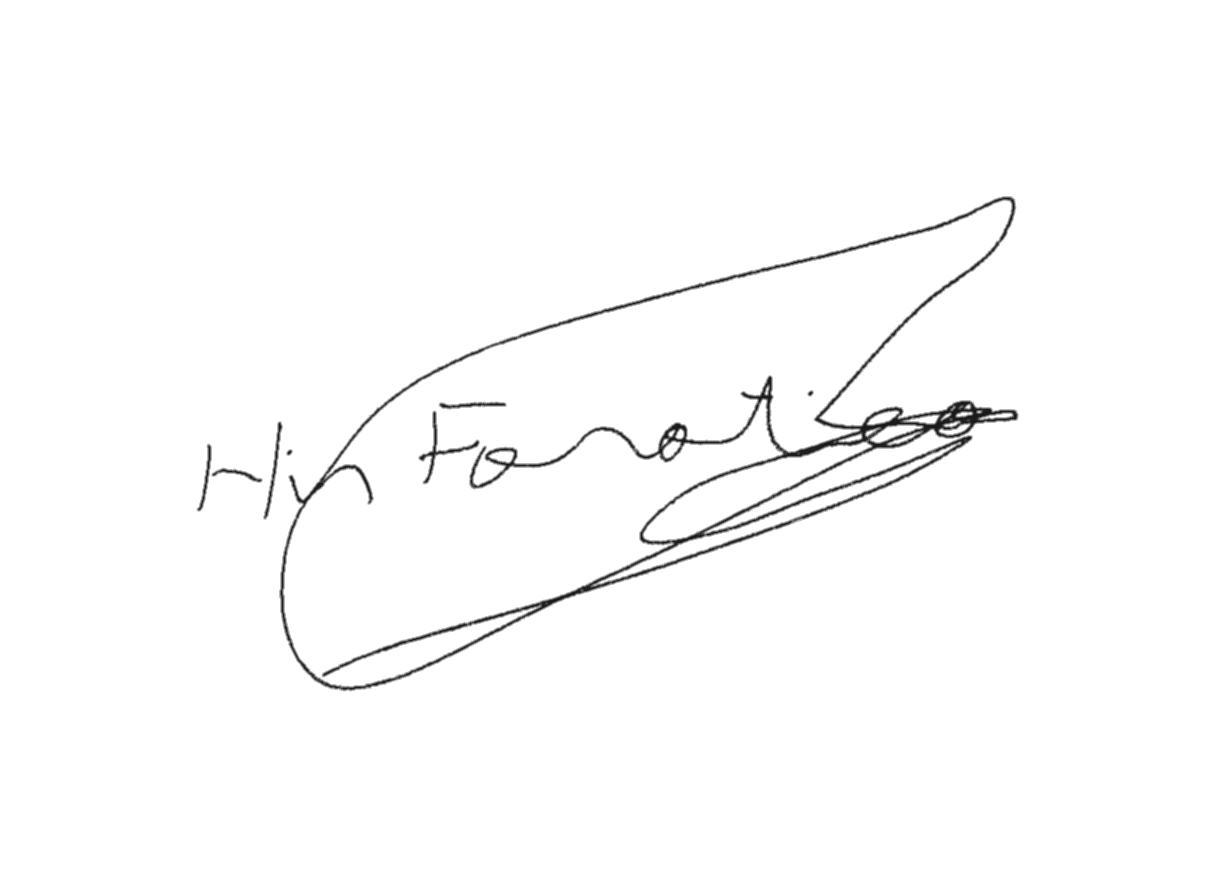 Hin Fanatico